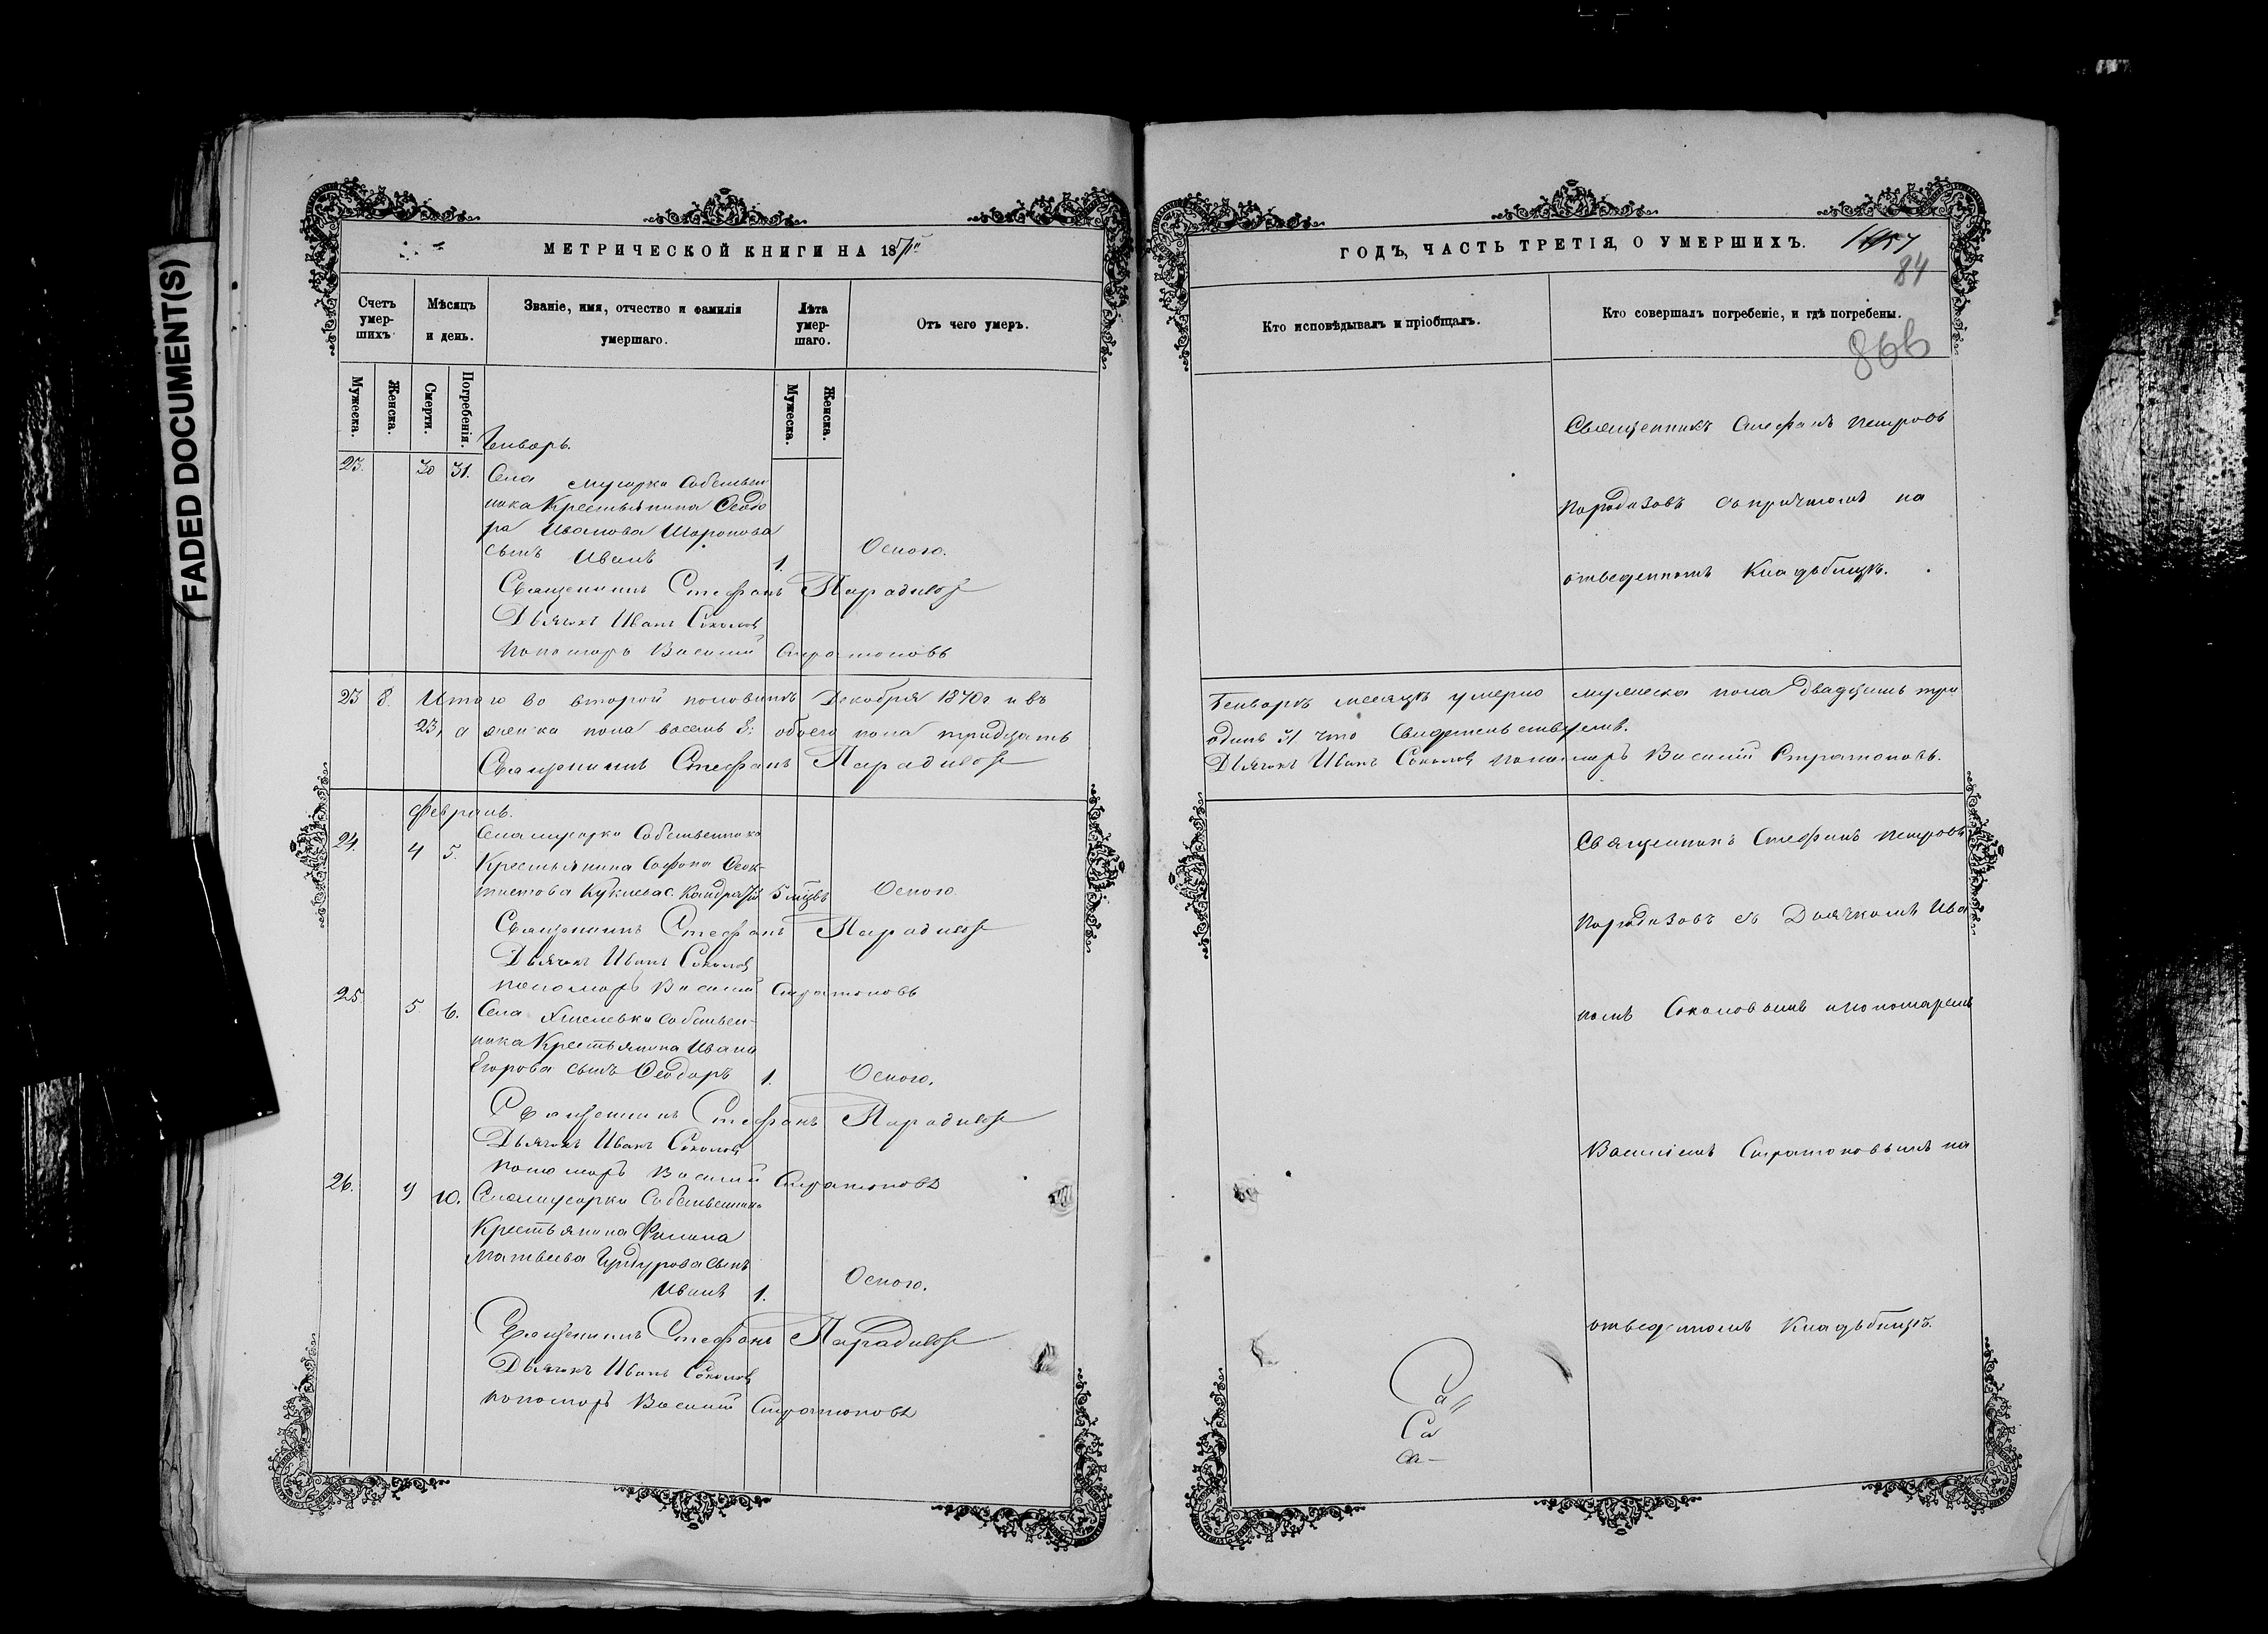 FADED DOCUMENT(S)
МЕТРИЧЕСКОЙ КНИГИ НА 1871й
Счетъ умер-шихъ.
Мѣсяцъ и день.
Званіе, имя, отчество и фамилія умершаго.
Лѣта умер-шаго.
Отъ чего умеръ.
Мужеска.
Женска.
Смерти.
Погребенія.
Мужеска.
Женска.
Генварь.
23. 30 31. Села Мусорки Собствен
ника Крестьянина Ѳеодо
ра Иванова Шаронова
сынъ Иванъ 1. Оспою.
Священникъ Стефанъ Парадизов
Дьячокъ Иванъ Соколов
пономарь Василий Стратоновъ
23 8. Итого во второй половинѣ Декабря 1870г и въ
23, а женска пола восемь 8: обоего пола тридцать
Священникъ Стефанъ Парадизов
Февраль.
24. 4 5. Села мусорки Собственника
Крестьянина Софона Ѳеок-
тистова Куклева с. Кондратій 5 мцвъ Оспою
Священникъ Стефанъ Парадизов
Дьячокъ Иванъ Соколов
пономарь Василий Стратоновъ
25. 5 6. Села Хмелевки собствен-
ника Крестьянина Ивана
Егорова сынъ Ѳеодоръ 1. Оспою.
Священникъ Стефанъ Парадизов
Дьячокъ Иванъ Соколов
пономарь Василий Стратоновъ
26. 9 10. Села мусорки Собственника
Крестьянина Филипа
Матвеева сынъ
Иванъ 1. Оспою.
Священникъ Стефанъ Парадизов
Дьячокъ Иванъ Соколов
пономарь Василий Стратоновъ
ГОДЪ, ЧАСТЬ ТРЕТІЯ, О УМЕРШИХЪ.
84
866
Кто исповѣдывалъ и пріобщалъ.
Кто совершалъ погребеніе, и гдѣ погребены.
Священникъ Стефанъ Петровъ
Парадизовъ съ причтомъ на
отведенномъ кладбищѣ.
Генварѣ месяцѣ умерло мужеска пола двадцать три
одинъ 31 что свидетельствуемъ.
Дьячокъ Иванъ Соколов пономарь Василій Стратоновъ.
Священникъ Стефанъ Петровъ
Парадизовъ съ Дьячкомъ Ива
номъ Соколовымъ и пономаремъ
Василіемъ Стратоновымъ на
отведенномъ кладбищѣ.
Са
Са
са-